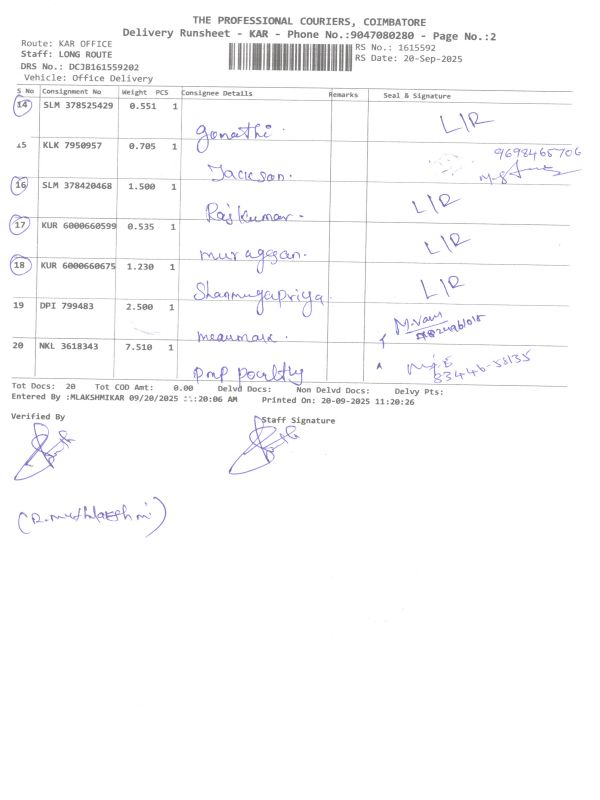 THE PROFESSIONAL COURIERS, COIMBATORE
Delivery Runsheet - KAR - Phone No.:9047080280 - Page No.:2
Route: KAR OFFICE
RS No.: 1615592
Staff: LONG ROUTE
RS Date: 20-Sep-2025
DRS No.: DCJB161559202
Vehicle: Office Delivery
S No Consignment No Weight PCS Consignee Details Remarks Seal & Signature
14 SLM 378525429 0.551 1 L/R
gomathi.
15 KLK 7950957 0.705 1 9698465706
Jackson.
16 SLM 378420468 1.500 1 L/R
Rajkumar.
17 KUR 6000660599 0.535 1 L/R
murugesan.
18 KUR 6000660675 1.230 1 L/R
Shanmugapriya
19 DPI 799483 2.500 1 M.Vani
20 NKL 3618343 7.510 1 83446-55135
pmp poultry
Tot Docs: 20 Tot COD Amt: 0.00 Delvd Docs: Non Delvd Docs: Delvy Pts:
Entered By :MLAKSHMIKAR 09/20/2025 11:20:06 AM Printed On: 20-09-2025 11:20:26
Verified By Staff Signature
(R.muthulakshmi)